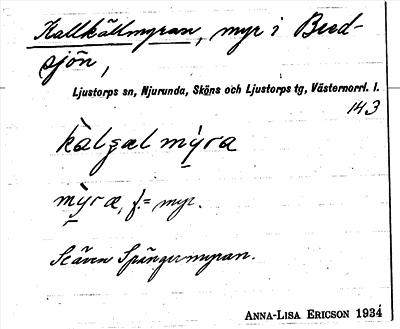 Kallkällmyran, myr i Bred-
sjön,
Ljustorps sn, Njurunda, Sköns och Ljustorps tg, Västernorrl. l.
143
kȁlgæl myra
myra, f. = myr.
Se även Spångermyran.
ANNA-LISA ERICSON 1934